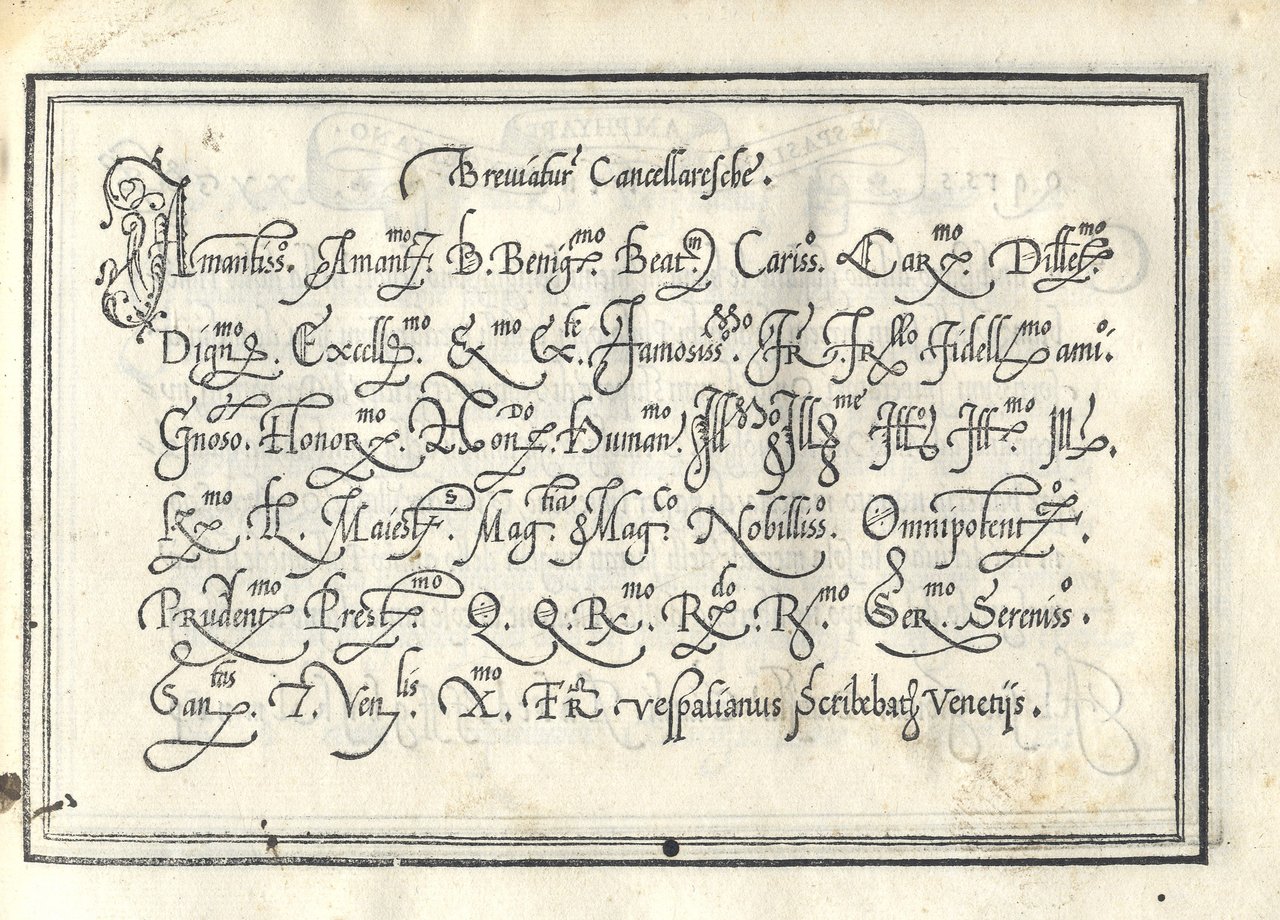 Breviatur Cancellaresche.
Amantiss.o Amant.mo 7. B. Benig.mo Beat.m Cariss.o Car.mo Dillet.mo
Dign.mo Excell.mo E.mo Ex.te Famosiss.mo Fr. Fr.llo Fidell.mo ami.o
Gnoso. Honor.mo Hon.do Human.mo Ill.mo Ill.me Ill.o Ill.mo Ill.
K.mo Maiest.s Mag.tia & Mag.co Nobilliss.o Omnipotent.o
Prudent.mo Prest.mo Q. Q. R.mo R.do R.mo Ser.mo Sereniss.o
San.tas 7. Ven.lis X.mo Fr vespasianus Scribebat Venetijs.